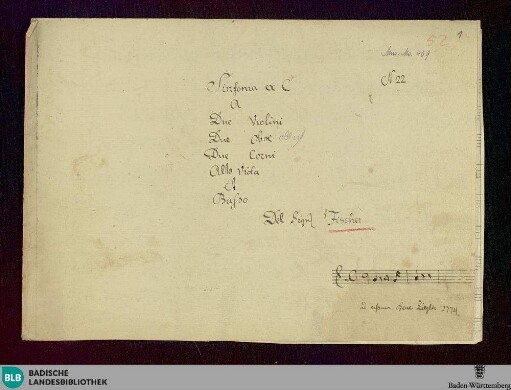 52 1
Mus. Hs. 269
N 22
Sinfonia ex C
A
Due Violini
Due Oboe
Due Corni
Alto Viola
Et
Basso
Del Sigre Fischer
1774
BLB BADISCHE
LANDESBIBLIOTHEK
Baden-Württemberg